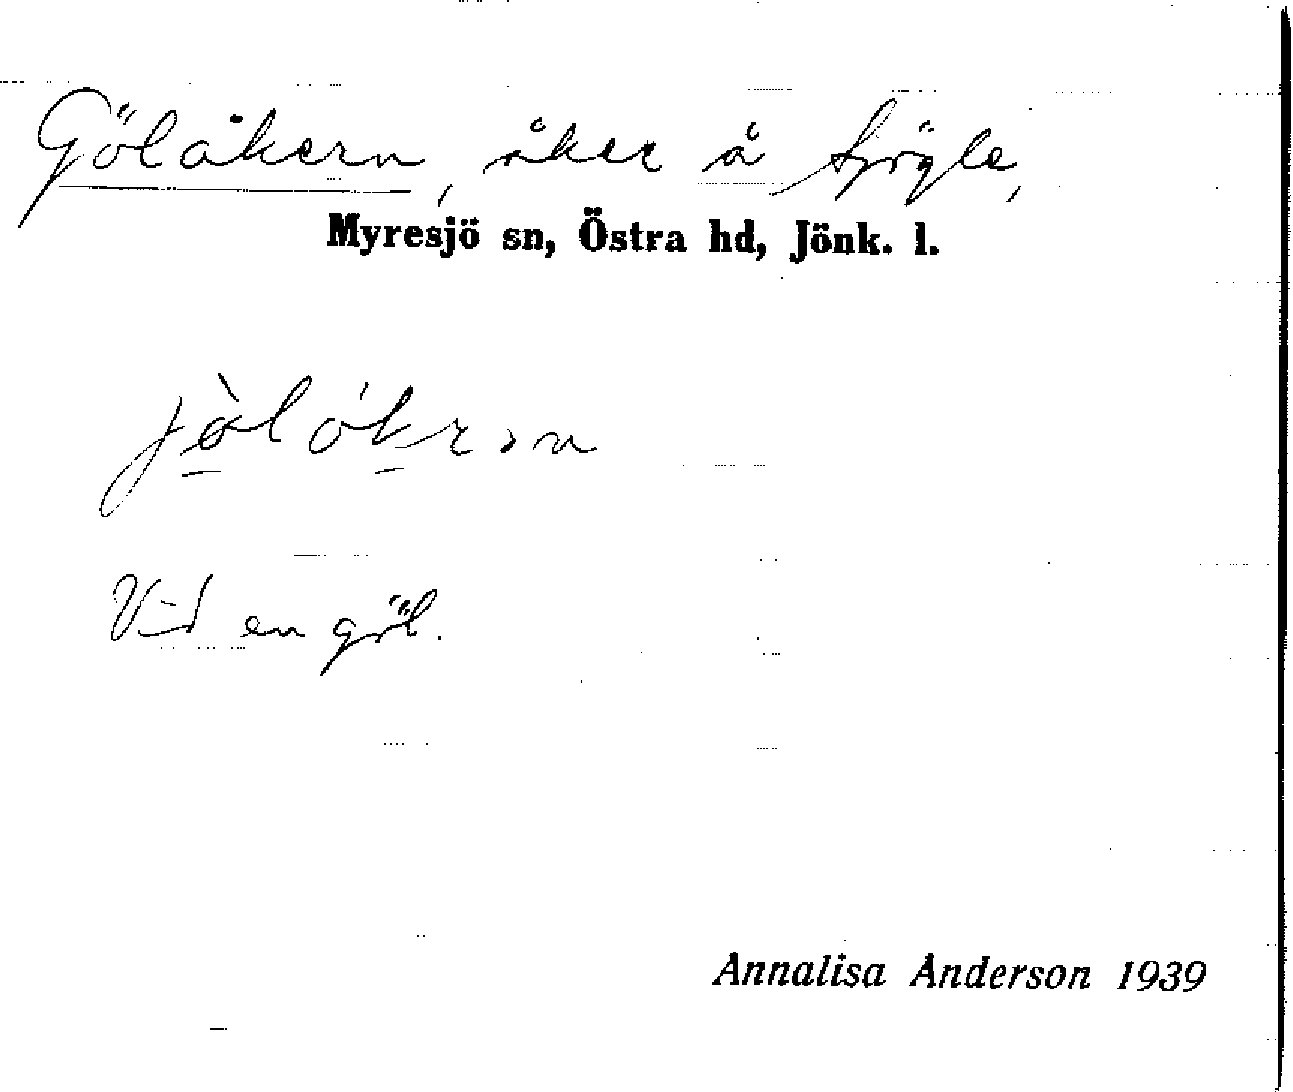 Gölåkern, åker å
Myresjö sn, Östra hd, Jönk. l.
Vid en göl.
Annalisa Anderson 1939